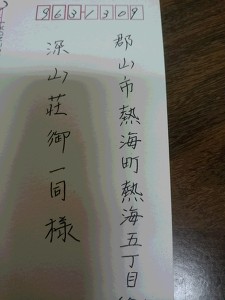 963-1309
郡山市熱海町熱海五丁目
深山荘御一同様